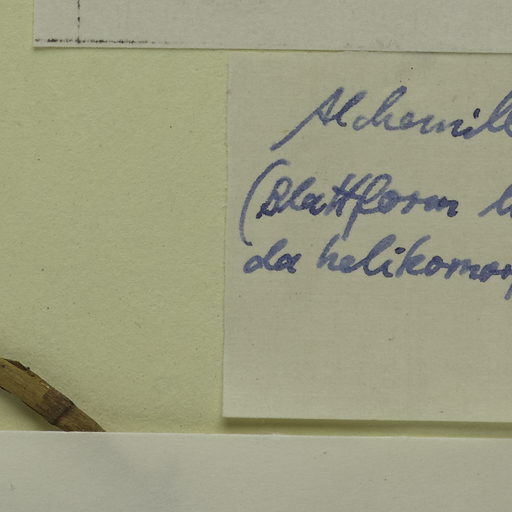 Alchemill
(Blattform
da helikomor